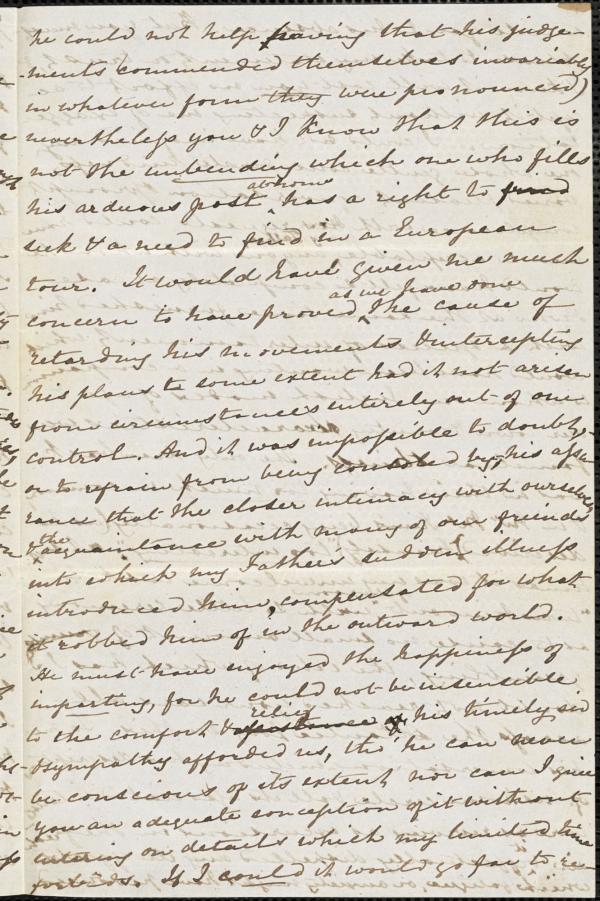 he could not help having that his judge-
ments commended themselves invariably
in whatever form they were pronounced)
nevertheless you & I know that this is
not the unbending which one who fills
at home
his arduous post has a right to find
seek & a need to find in a European
tour. It would have given me much
as we have done
concern to have proved the cause of
retarding his movements & intercepting
his plans to some extent had it not arisen
from circumstances entirely out of our
control. And it was impossible to doubt,
or to refrain from being consoled by, his assu
rance that the closer intimacy with ourselves
& the acquaintance with many of our friends
into which my Father's sudden illness
introduced him, compensated for what
it robbed him of in the outward world.
He must have enjoyed the happiness of
imparting, for he could not be insensible
relief
to the comfort & assistance of his timely aid
& sympathy afforded us, tho' he can never
be conscious of its extent nor can I give
you an adequate conception of it without
entering on details which my limited time
forbids. If I could it would go far to re-